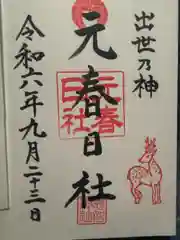 出世乃神
元春日社
元春
日社
令和六年九月二十三日